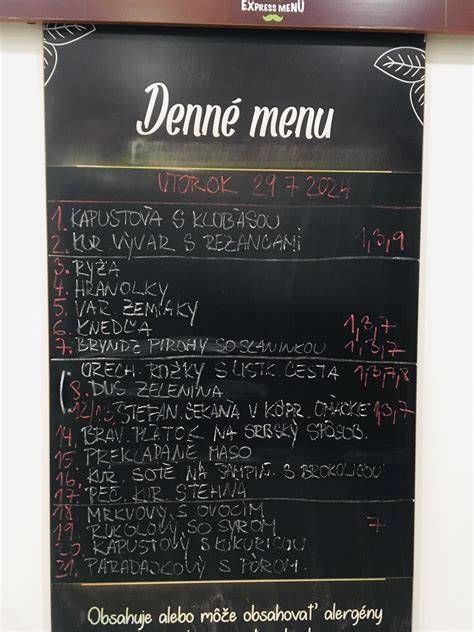 EXPRESS MENU
Denné menu
UTOROK 29 7 2024
1. KAPUSTOVÁ S KLOBÁSOU
2. KUR VÝVAR S REZANCAMI 1,3,9
3. RYŽA
4. HRANOLKY
5. VAR. ZEMIAKY
6. KNEDĽA 1,3,7
7. BRYNDZ PIROHY SO SLANINKOU 1,3,7
ORECH. ROŽKY S LISTK CESTA 1,3,7,8
8. DUS ZELENINA
12/13. ŠTEFAN. SEKANÁ V KÔPR. OMÁČKE 1,3,7
14. BRAV. PLÁTOK NA SRBSKÝ SPÔSOB.
15. PREKLADANÉ MASO
16. KUR. SOTÉ NA ŠAMPIŇ. S BROKOLICOU
17 PEČ. KUR. STEHNÁ
18 MRKVOVÝ S OVOCÍM
19 RUKOLOVÝ SO SYROM 7
20. KAPUSTOVÝ S KUKURICOU
21. PARADAJKOVÝ S PÓROM.
Obsahuje alebo môže obsahovať alergény